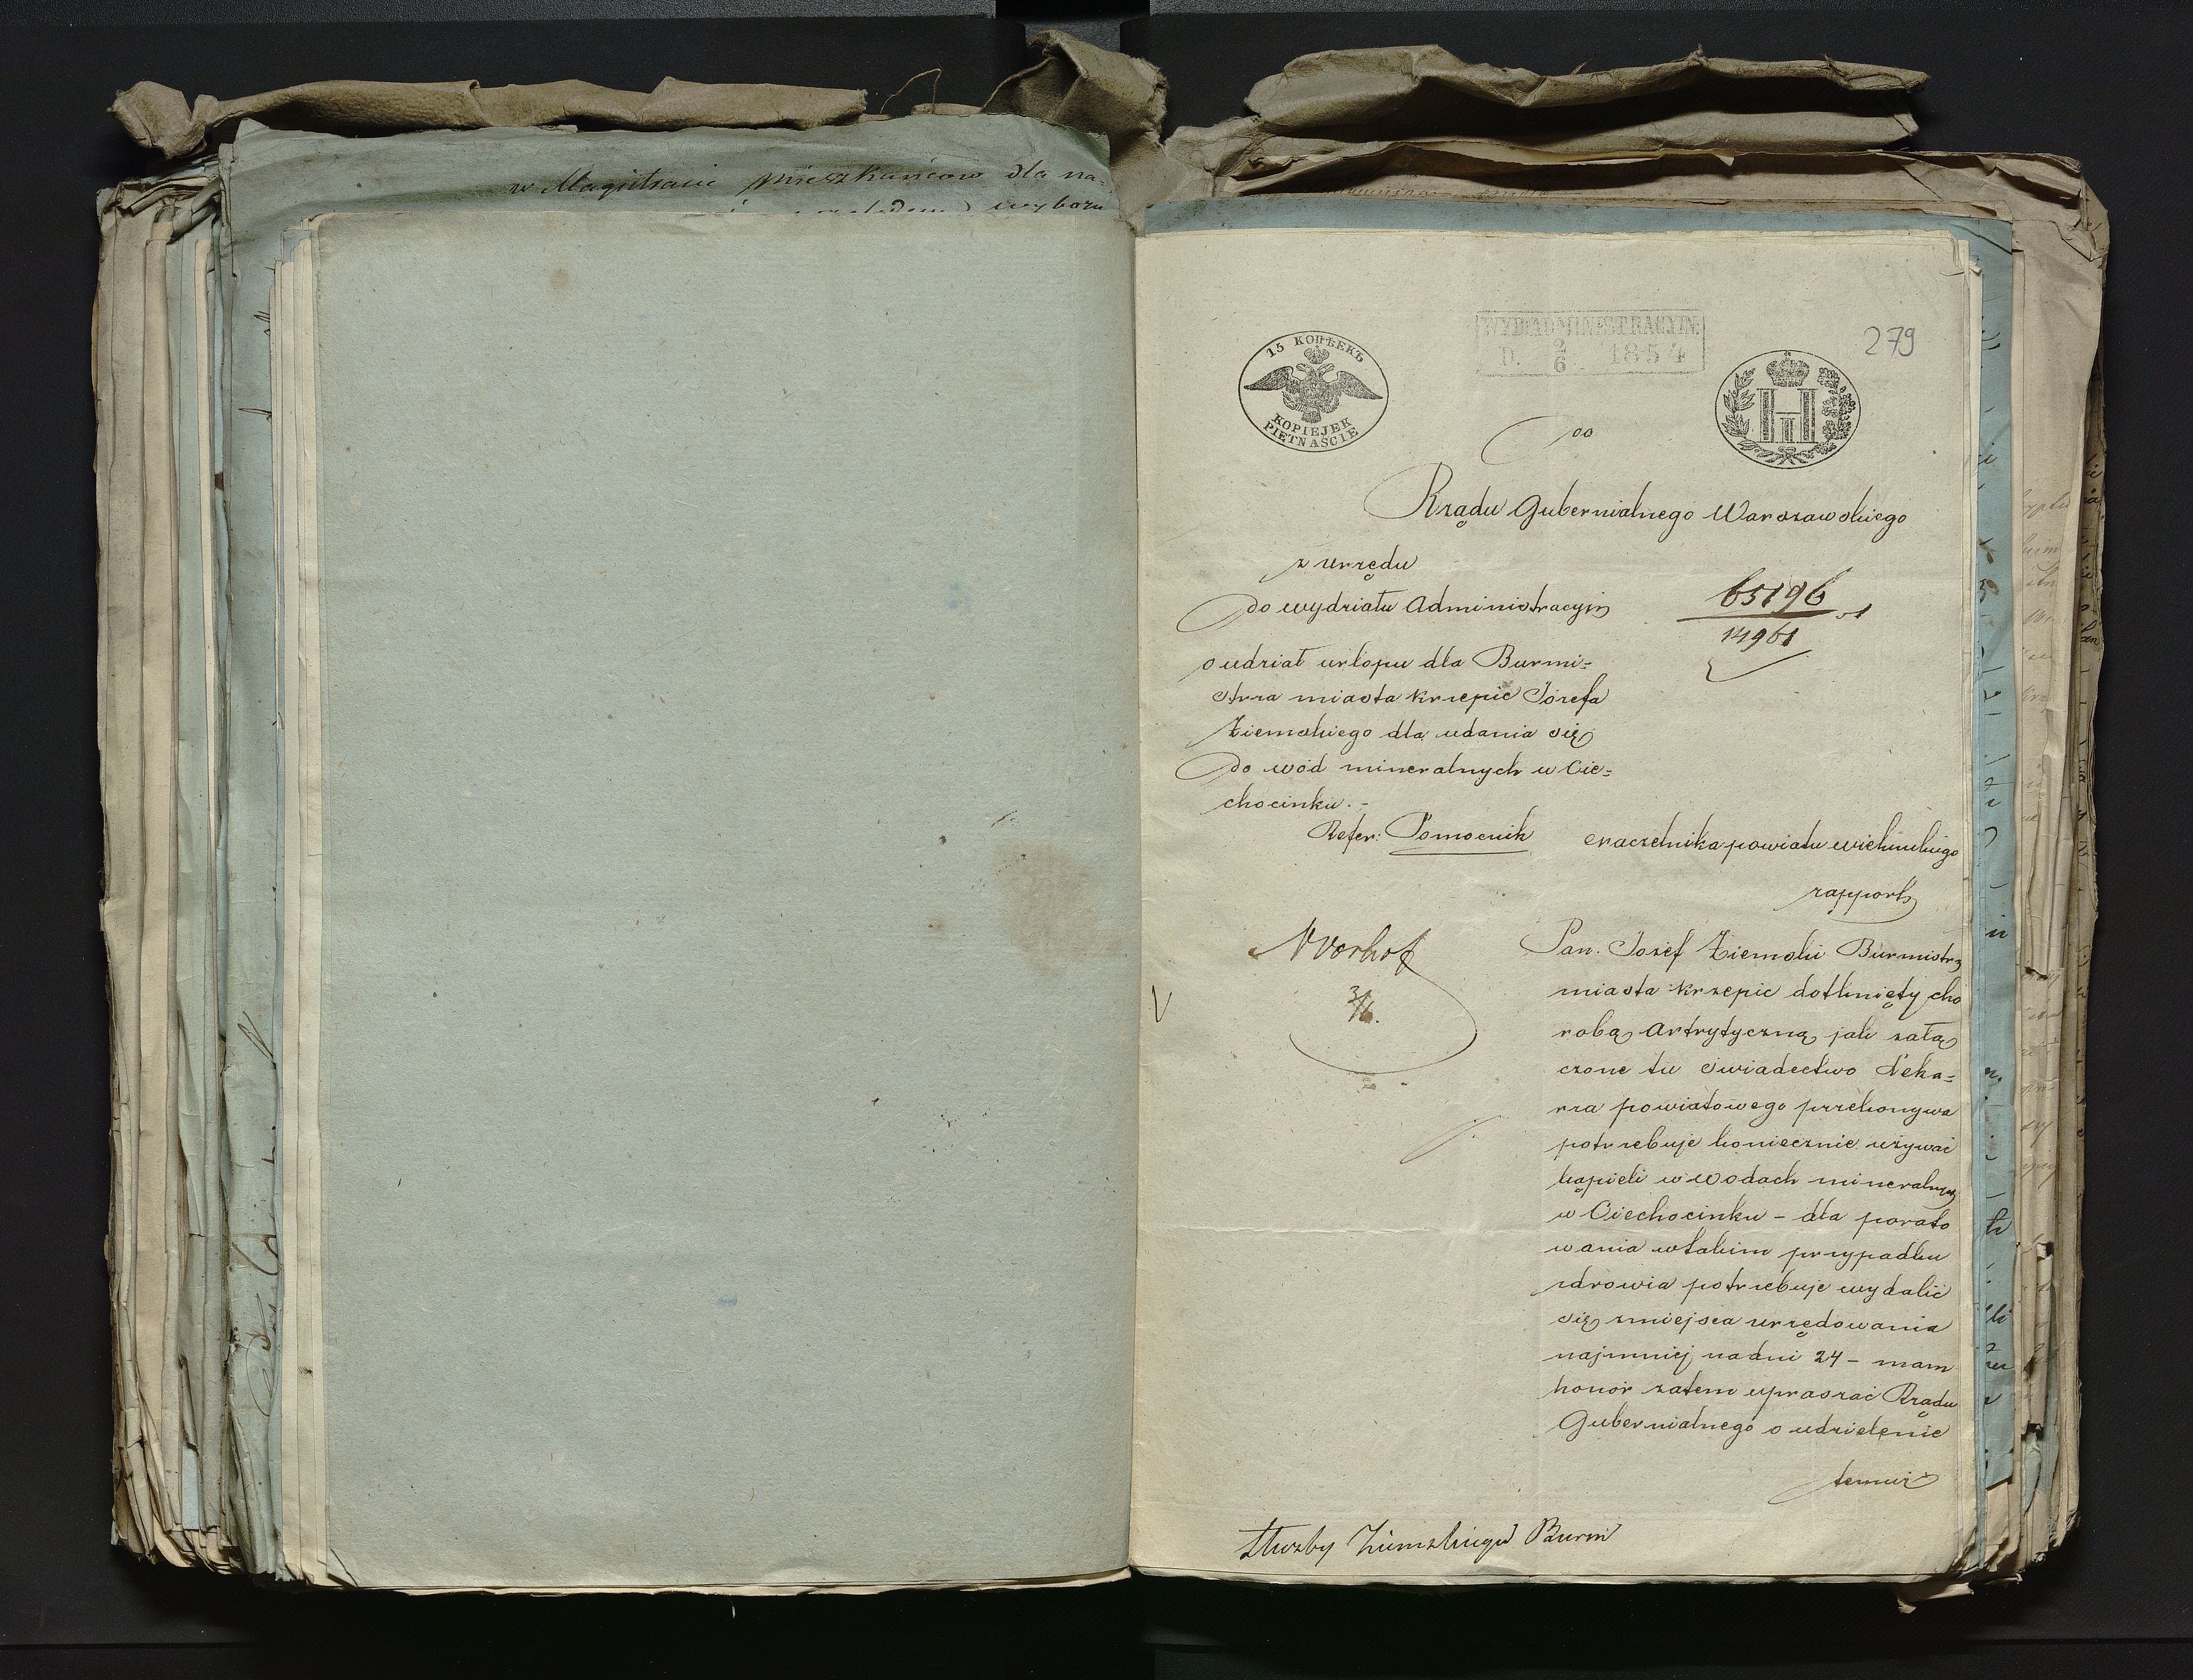 w Magistracie Mieszkańców dla na=
wyboru
279
15 КОПѢЕКЪ
KOPIEJEK
PIĘTNAŚCIE
WYDZ. ADMINISTRACYJN:
D. 2/6 1854
H
II
Do
Rządu Gubernialnego Warszawskiego
z urzędu
do wydziału Administracyjn
65196
14961
o udział urlopu dla Burmi=
strza miasta Krzepic Józefa
Ziemskiego dla udania się
do wód mineralnych w Cie=
chocinku.-
Refer: Pomocnik
Naczelnika powiatu wieluńskiego
rapport
3/6.
V
Pan. Józef Ziemski Burmistrz
miasta Krzepic dotknięty cho
robą Artrytyczną jak załą
czone tu świadectwo Leka=
rza powiatowego przekonywa
potrzebuje koniecznie używać
kąpieli w wodach mineralnych
w Ciechocinku - dla porato
wania w takim przypadku
zdrowia potrzebuje wydalić
się z miejsca urzędowania
najmniej na dni 24 - mam
honor zatem upraszać Rządu
Gubernialnego o udzielenie
temuż
Służby Ziemskiego Burm